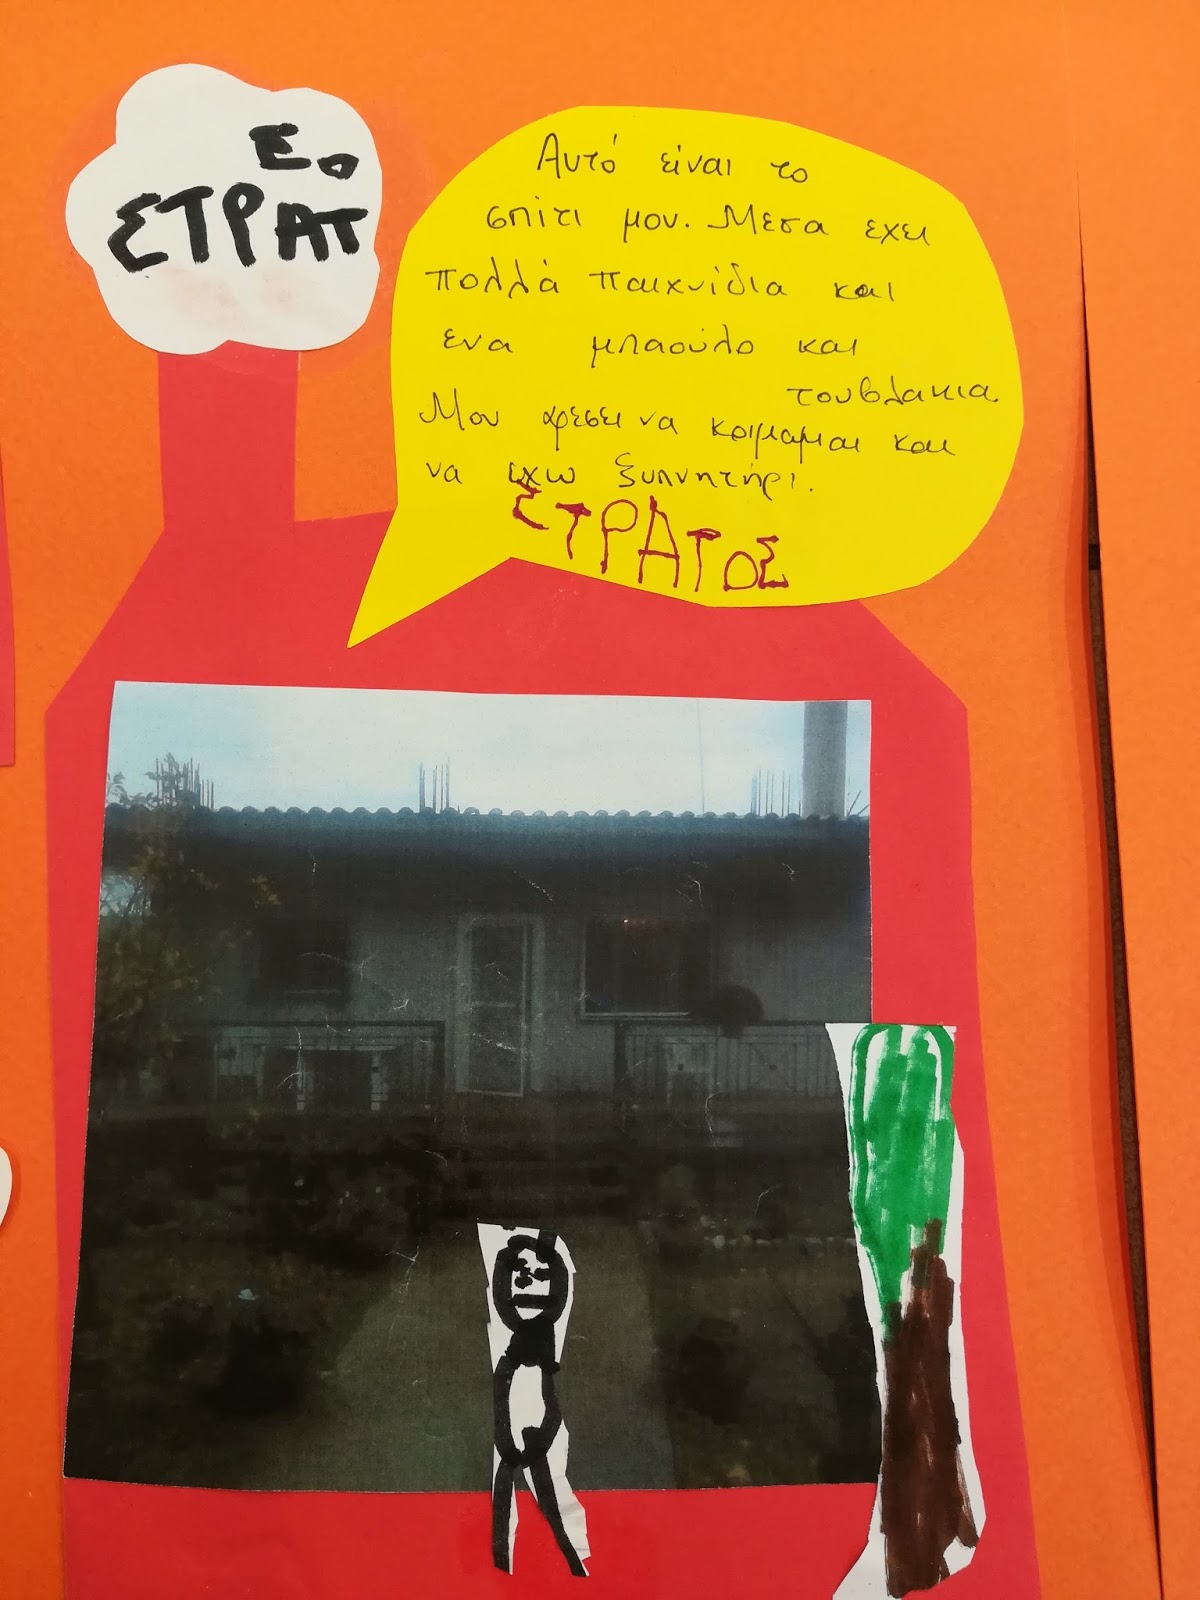 Σο
ΣΤΡΑΤ
Αυτό είναι το
σπίτι μου. Μεσα εχει
πολλά παιχνίδια και
ενα μπαούλο και
τουβλακια.
Μου αρεσει να κοιμαμαι και
να εχω ξυπνητήρι.
ΣΤΡΑΤΟΣ